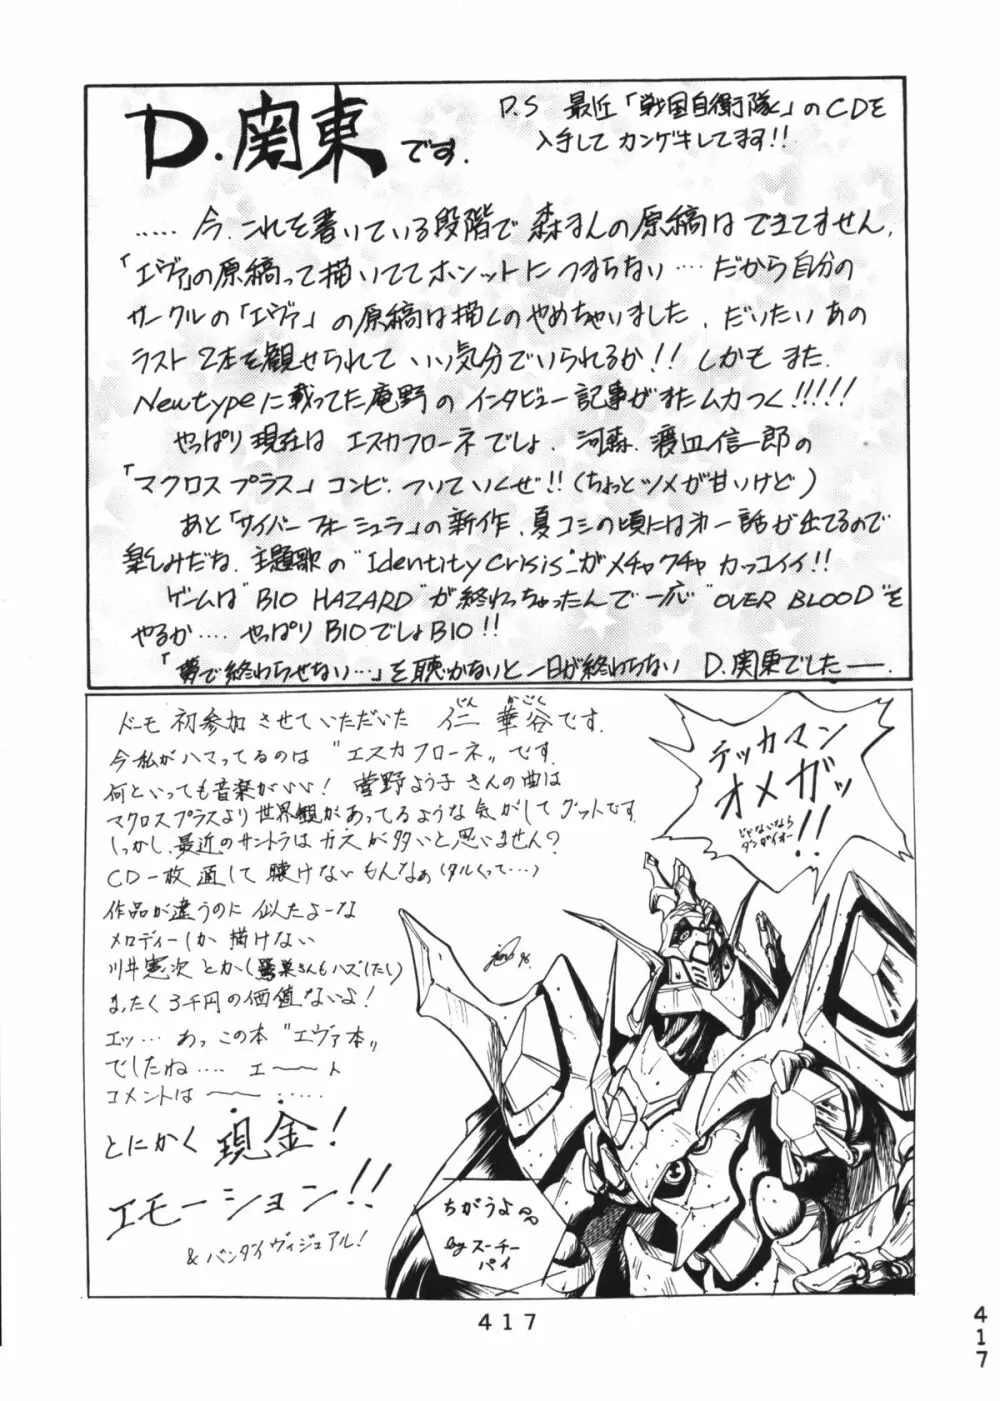 D.関東です.
P.S 最近「戦国自衛隊」のCDを
入手してカンゲキしてます!!
…… 今.これを書いている段階で 森さんの原稿はできてません.
「エヴァ」の原稿って描いててホンットにつまらない…だから自分の
サークルの「エヴァ」の原稿は描くのやめちゃいました. だいたい あの
ラスト 2本を観せられて いい気分でいられるか!! しかもまた.
Newtypeに載ってた庵野のインタビュー記事がまたムカつく!!!!!
やっぱり現在は エスカフローネでしょ. 河森. 渡辺信一郎の
「マクロスプラス」コンビ.ついていくぜ!!(ちょっとツメが甘いけど)
あと「サイバーフォーミュラ」の新作.夏コミの頃には オ一話が出てるので
楽しみだね.主題歌の"Identity Crisis"がメチャクチャ カッコイイ!!
ゲームは"BIO HAZARD"が終わっちゃったんで一応"OVER BLOOD"を
やるか…. やっぱりBIOでしょBIO!!
「夢で終わらせない…」を聴かないと一日が終わらない D.関東でしたー.
ドーモ 初参加 させていただいた 仁 華谷です.
じん かごく
今私がハマってるのは "エスカフローネ" です.
何といっても音楽がいい! 菅野よう子 さんの曲は
マクロスプラスより世界観があってるような 気がして グットです.
しかし、最近のサントラは カスが多いと思いません?
CD一枚 通して 聴けないもんなぁ(タルくって…)
作品が違うのに 似たよーな
メロディーしか 描けない
川井憲次 とか(鷺巣さんもハズしたし)
まったく 3千円の価値ないよ!
エッ… あっ この本 "エヴァ本"
でしたね…. エ〜〜ト
コメントは 〜〜 ……
とにかく 現金!
エモーション!!
& バンダイヴィジュアル!
テッカマン
オメガッ
!!
じゃないなら
ダンガイオー
96.
ちがうよ
by スーチー
パイ
417
417